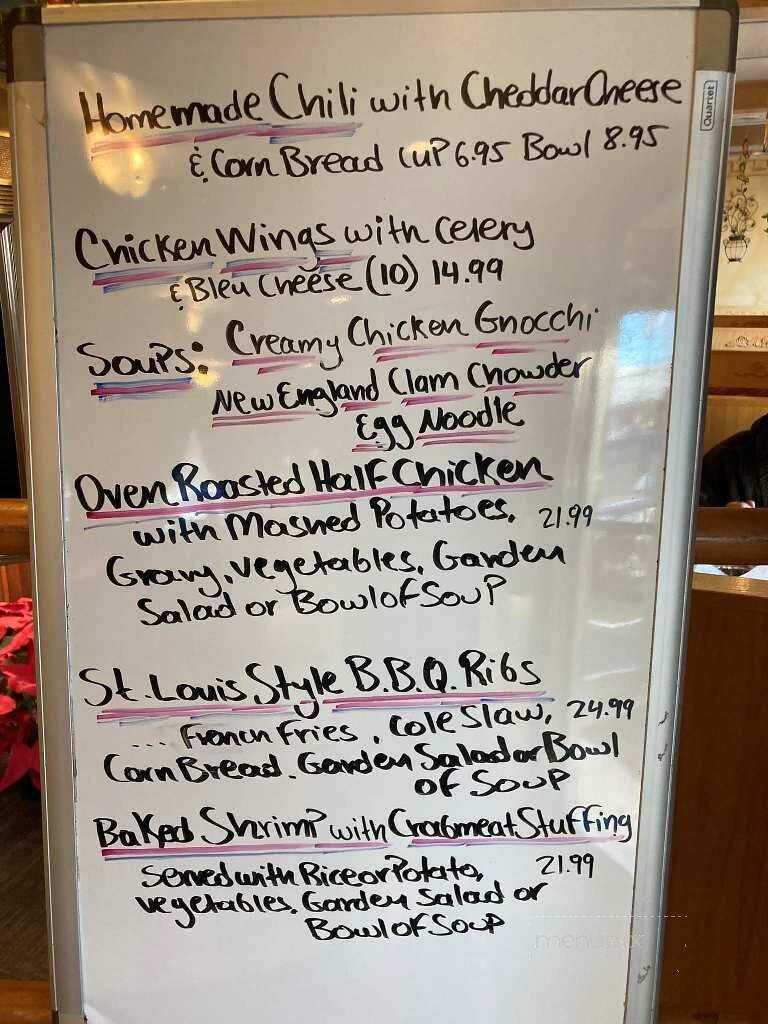 Homemade Chili with Cheddar Cheese
& Corn Bread CUP 6.95 Bowl 8.95
Quartet
Chicken Wings with Celery
& Bleu Cheese (10) 14.99
Soups: Creamy Chicken Gnocchi
New England Clam Chowder
Egg Noodle
Oven Roasted Half Chicken
with Mashed Potatoes, 21.99
Gravy, vegetables, Garden
Salad or Bowl of Soup
St. Louis Style B.B.Q. Ribs
.... French Fries, Cole Slaw, 24.99
Corn Bread. Garden Salad or Bowl
of Soup
Baked Shrimp with Crabmeat Stuffing
Served with Rice or Potato, 21.99
vegetables. Garden Salad or
Bowl of Soup